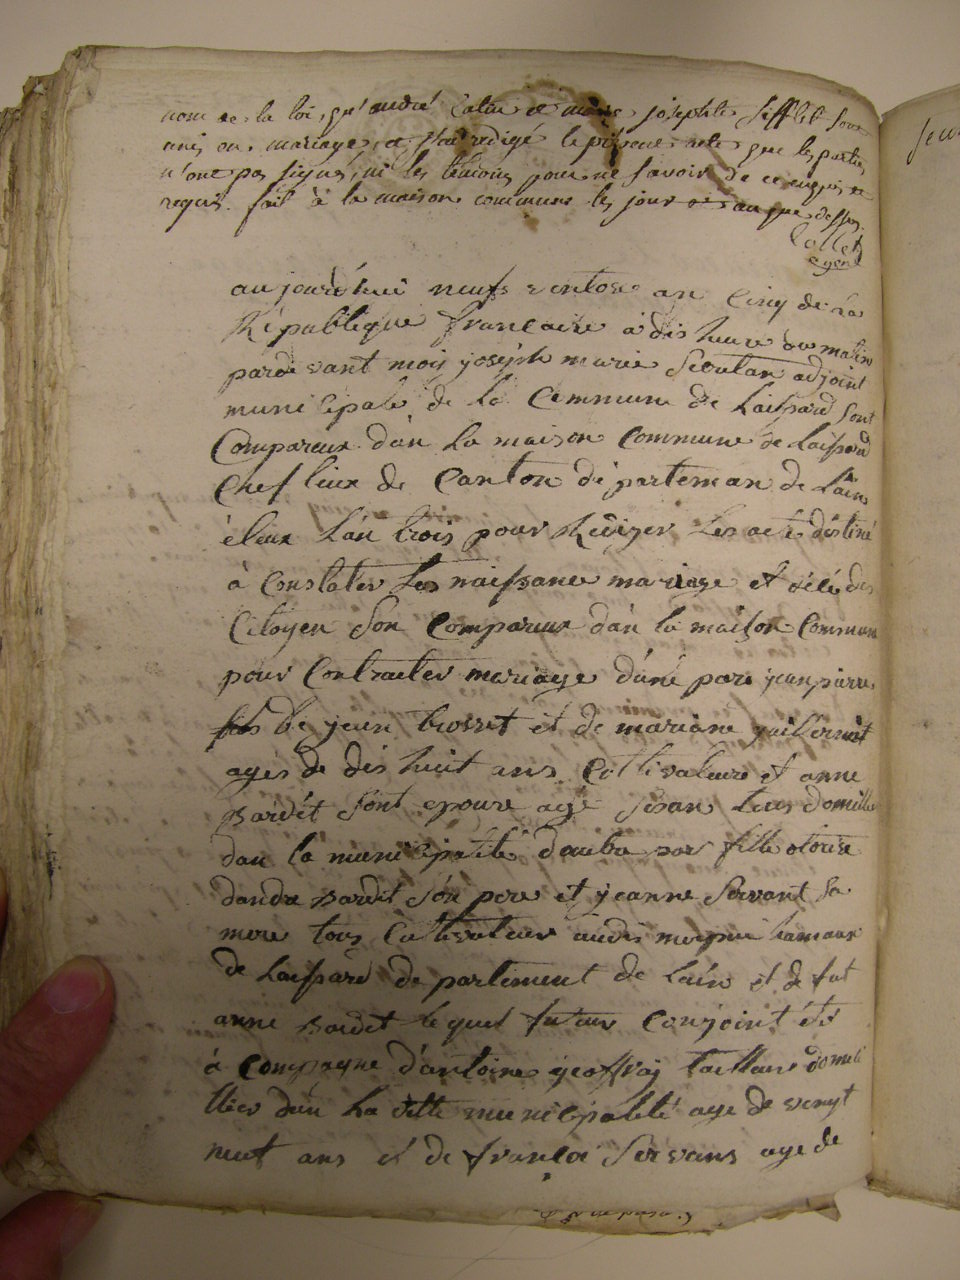 nom de la loi, qu'andré Catin et marie josephte Sifflet sont
unis en mariage, et j'ai redigé le présent acte que les parties
n'ont pas signés, ni les témoins pour ne savoir de ce enquis et
requis. fait à la maison commune les jour et an que dessus.
Collet
agent
aujourd'huei neufs ventose an Cinq de La
République francaire à dis heure du matin
parde vant moy joseph marie Sevelan adjoint
municipale de la Commune de Laissard sont
Compareux dan la maison Commune de Laissard
Chef lieux de Canton departeman de Lain
éleux Lan trois pour Redizer Les acte destiné
à Constater Les naissance mariage et décé des
Citoyen Son Comparux dan la maison Commune
pour Contracter mariage d'uné pare jean piere
fils de jean brosset et de mariane guillermit
ages de dis huit ans Cultivateure et anne
Bardet sont epouse agé tous domillie
dan la municipalité dauba par fille
dandre Bardet son pere et jeanne Servant sa
mere tous Cultivateur audis hamaux
de Laissard de partement de Lain et de fut
anne Bardet lequel futur Conjoint été
à Compagne d'antoine geoffraj taillare domici
llier dan La ditte municipalité age de vingt
neuf ans et de francoi Servans age de